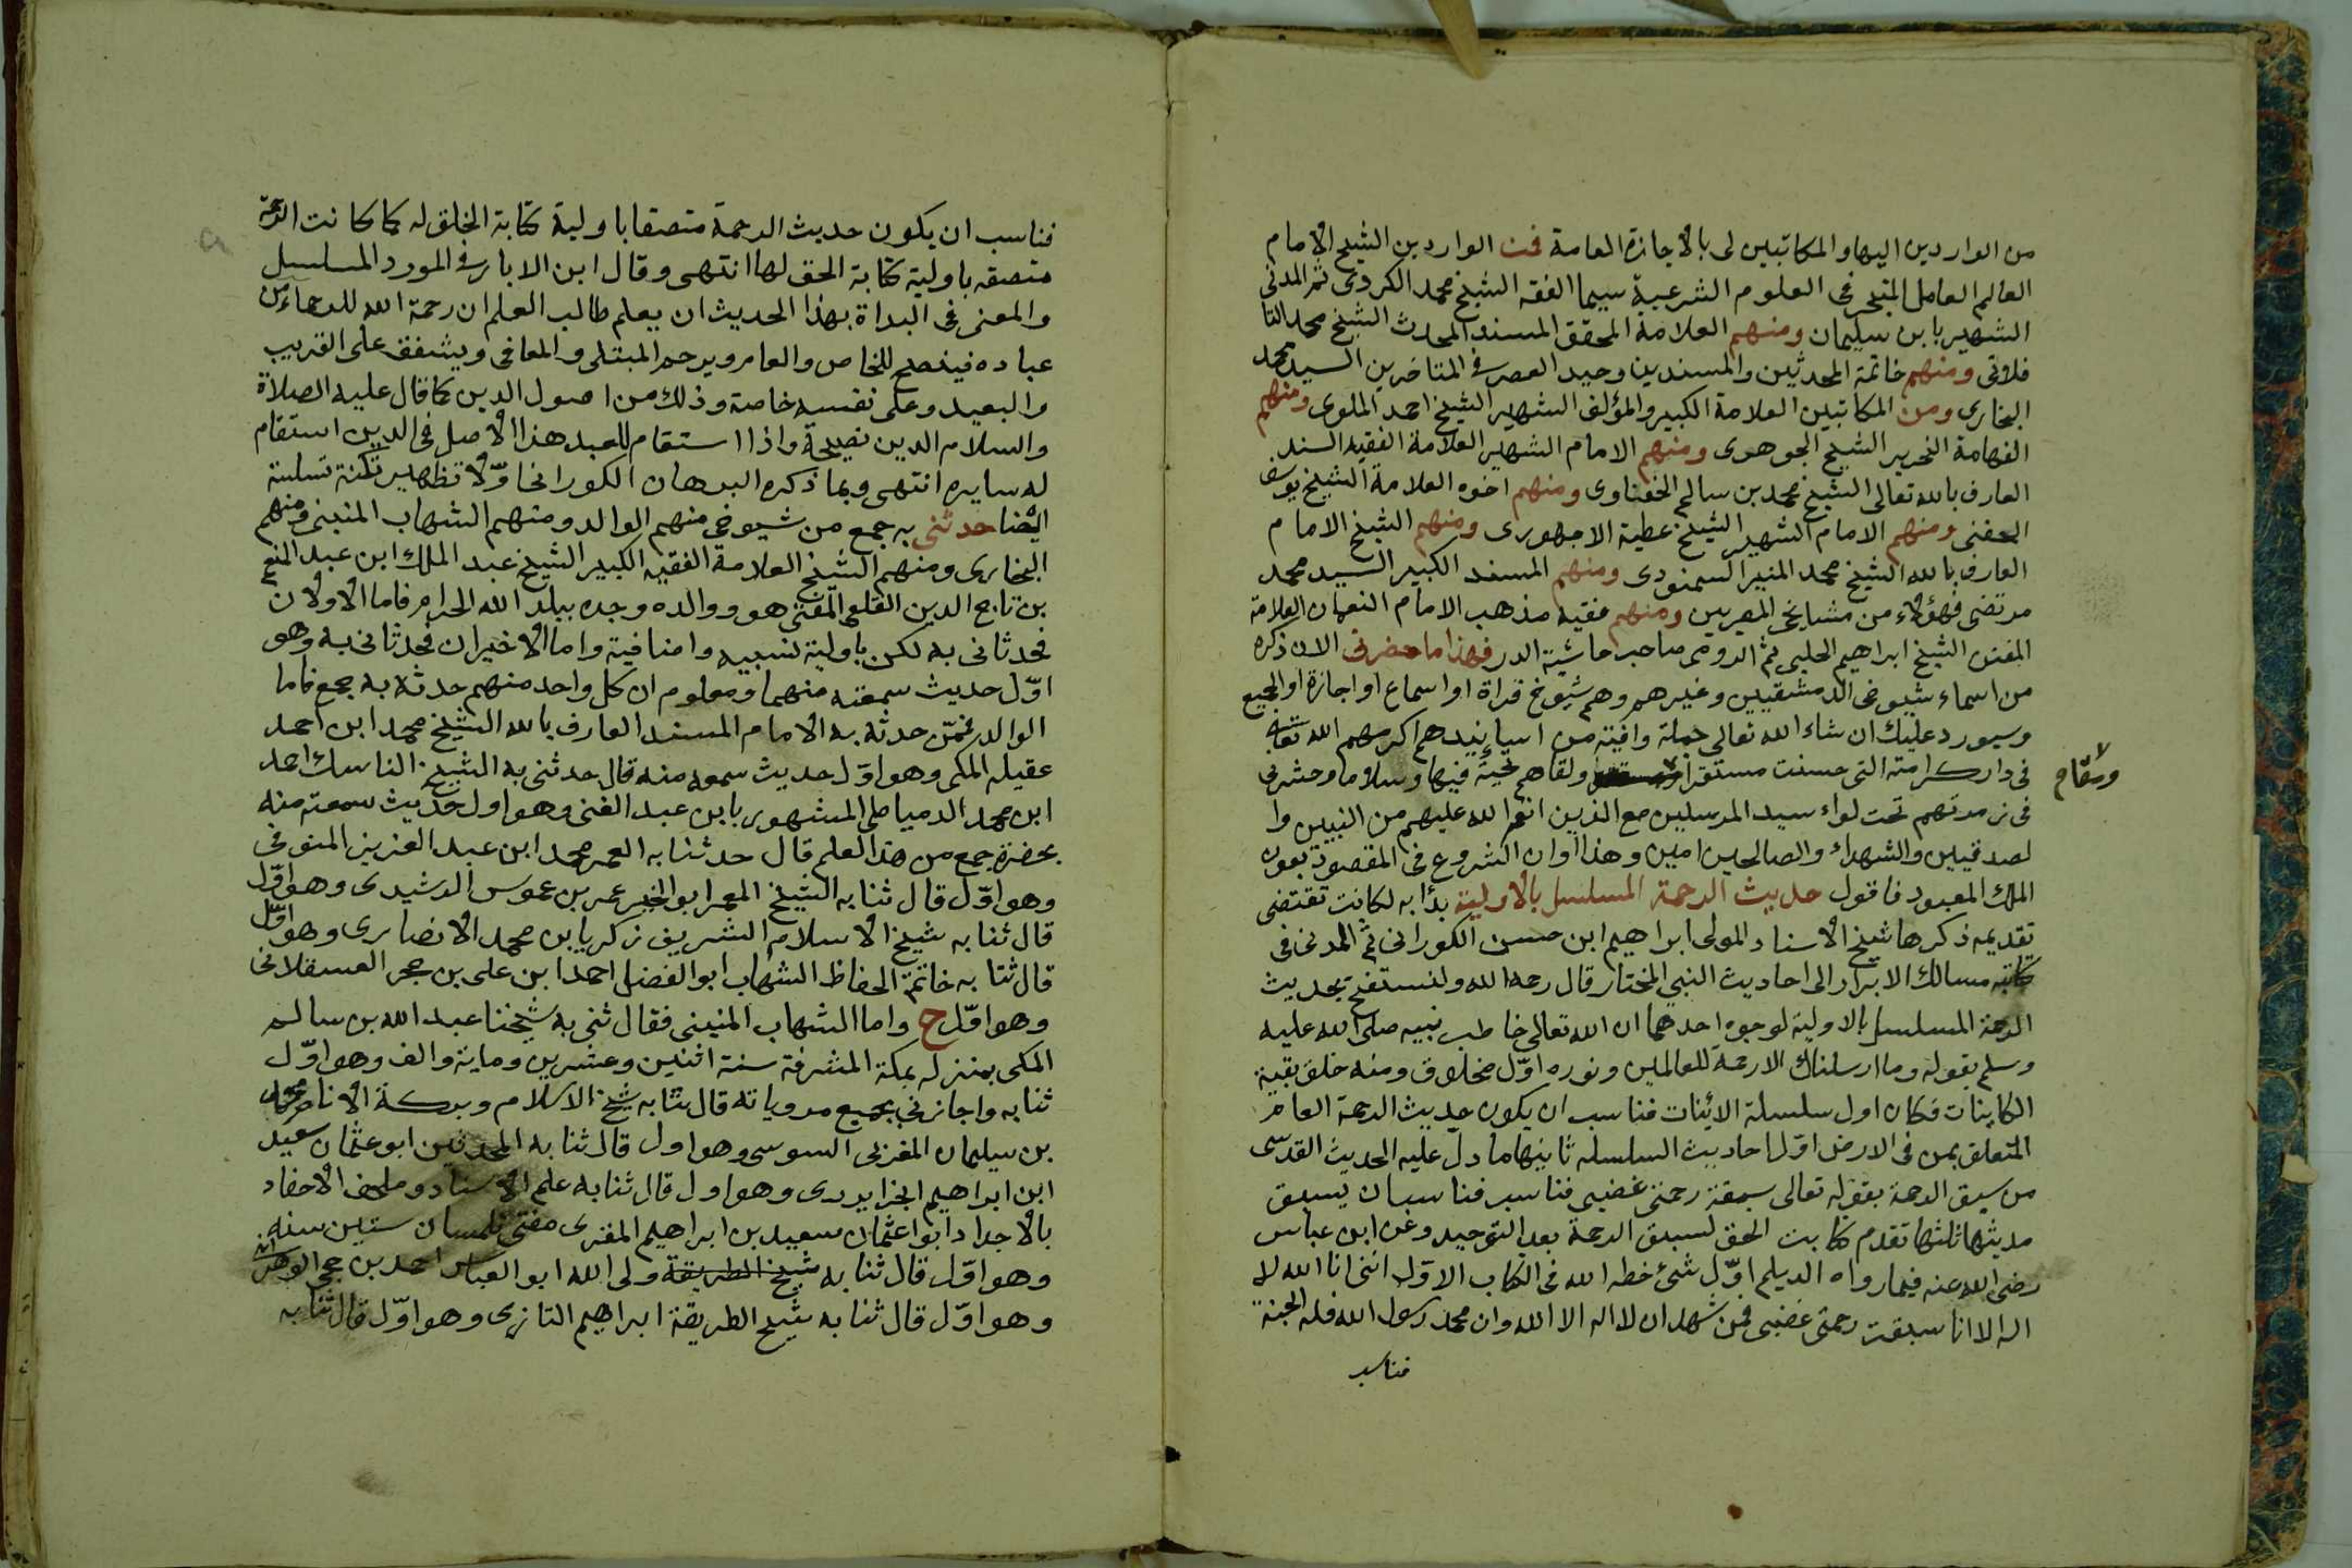 من الواردين اليها والمكاتبين لى بالاجازة العامة فمن الواردين الشيخ الامام
العالم العامل المتبحر فى العلوم الشرعية سيما الفقه الشيخ محمد الكردى ثم المدنى
الشهير بابن سليمان ومنهم العلامة المحقق المسند المحدث الشيخ محمد التا
فلاتى ومنهم خاتمة المحدثين والمسندين وحيد العصر فى المتاخرين السيد محمد
البخارى ومن المكاتبين العلامة الكبير والمؤلف الشهير الشيخ احمد الملوى ومنهم
الفهامة النحرير الشيخ الجوهرى ومنهم الامام الشهير العلامة الفقيه السند
العارف بالله تعالى الشيخ محمد بن سالم الحفناوى ومنهم اخوه العلامة الشيخ يوسف
الحفنى ومنهم الامام الشهير الشيخ عطية الاجهورى ومنهم الشيخ الامام
العارف بالله الشيخ محمد المنير السمنودى ومنهم المسند الكبير السيد محمد
مرتضى فهؤلاء من مشايخى المصريين ومنهم فقيه مذهب الامام النعمان العلامة
المفنن الشيخ ابراهيم الحلبى ثم الرومى صاحب حاشية الدر فهذا ما حضرنى الان ذكره
من اسماء شيوخى الدمشقيين وغيرهم وهم شيوخ قراة او اسماع او اجازة او الجميع
وسيورد عليك ان شاء الله تعالى جملة وافية من اسانيدهم اكرمهم الله تعالى
فى دار كرامته التى حسنت مستقرا ولقاهم تحية فيها وسلاما وحشرنى
ومقاما
فى زمرتهم تحت لواء سيد المرسلين مع الذين انعم الله عليهم من النبيين وا
لصدقيين والشهداء والصالحين امين وهذا اوان الشروع فى المقصود بعون
الملك المعبود فاقول حديث الرحمة المسلسل بالاولية بدأ به لكانت تقتضى
تقديمه ذكرها شيخ الاسناد المولى ابراهيم ابن حسن الكورانى ثم المدنى فى
كتابه مسالك الابرار الى احاديث النبى المختار قال رحمه الله ولنستفتح بحديث
الرحمة المسلسل بالاولية لوجوه احدها ان الله تعالى خاطب نبيه صلى الله عليه
وسلم بقوله وما ارسلناك الا رحمة للعالمين ونوره اول مخلوق ومنه خلق بقية
الكاينات فكان اول سلسلة الائنات فناسب ان يكون حديث الرحمة العام
المتعلق بمن فى الارض اول احاديث السلسله ثانيها ما دل عليه الحديث القدسى
من سبق الرحمة بقوله تعالى سبقة رحمتى غضبى فناسب فناسب ان يسبق
حديثها ثالثها تقدم كتابت الحق لسبق الرحمة بعد التوحيد وعن ابن عباس
رضى الله عنه فيما رواه الديلم اول شئ خطه الله فى الكتاب الاول اننى انا الله لا
اله الا انا سبقت رحمتى غضبى فمن شهد ان لا اله الا الله وان محمد رسول الله فله الجنة
فناسب
فناسب ان يكون حديث الرحمة متصفا باولية كتابة الخلق له كما كانت الرحمة
متصفه باولية كتابة الحق لها انتهى وقال ابن الابار فى المورد المسلسل
والمعنى فى البداة بهذا الحديث ان يعلم طالب العلم ان رحمة الله للرحماء من
عباده فينصح للخاص والعام ويرحم المبتلى والمعافى ويشفق على القريب
والبعيد وعلى نفسه خاصة وذلك من اصول الدين كما قال عليه الصلاة
والسلام الدين نصيحة واذا استقام للعبد هذا الاصل فى الدين استقام
له سايره انتهى وبما ذكره البرهان الكورانى اولا تظهير نكتة تسلسة
ايضا حدثنى به جمع من شيوخى منهم الوالد ومنهم الشهاب المنينى ومنهم
البخارى ومنهم الشيخ العلامة الفقيه الكبير الشيخ عبد الملك ابن عبد المنعم
بن تاج الدين القلعى المفتى هو ووالده وجده ببلد الله الحرام فاما الاولان
فحدثانى به لكن باولية نسبيه وامنافية واما الاخيران فحدثانى به وهو
اول حديث سمعته منهما ومعلوم ان كل واحد منهم حدثه به جمع فاما
الوالد فممن حدثه به الامام المسند العارف بالله الشيخ محمد ابن احمد
عقيله المكى وهو اول حديث سمعه منه قال حدثنى به الشيخ الناسك احمد
ابن محمد الدمياطى المشهور بابن عبد الغنى وهو اول حديث سمعته منه
بحضرة جمع من هذا العلم قال حدثنا به المعمر محمد ابن عبد العزيز المنوفى
وهو اول قال ثنا به الشيخ المعمر ابو الخير عمر بن عموس الرشيدى وهو اول
قال ثنا به شيخ الاسلام الشريف زكريا بن محمد الانصارى وهو اول
قال ثنا به خاتمة الحفاظ الشهاب ابو الفضل احمد ابن على بن حجر العسقلانى
وهو اول ح واما الشهاب المنينى فقال ثنى به شيخنا عبد الله بن سالم
المكى بمنزله بمكة المشرفة سنة اثنين وعشرين وماية والف وهو اول
ثنا به واجازنى بجميع مروياته قال ثنا به شيخ الاسلام وبركة الانام محمد
بن سليمان المغربى السوسى وهو اول قال ثنا به المحدثين ابو عثمان سعيد
ابن ابراهيم الجزايردى وهو اول قال ثنا به علم الاسناد وملحق الاحفاد
بالاجداد ابوا عثمان سعيد بن ابراهيم المقرى مفتى تلمسان ستين سنه
وهو اول قال ثنا به شيخ الطريقة ولى الله ابو العباس احمد بن حجى الوهرانى
وهو اول قال ثنا به شيخ الطريقة ابراهيم التازى وهو اول قال ثنا به